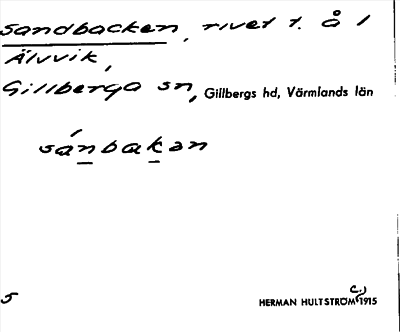 Sandbacken, rivet t. å i
Älvvik,
Gillberga sn, Gillbergs hd, Värmlands län
sánbakan
5
HERMAN HULTSTRÖM (c.) 1915